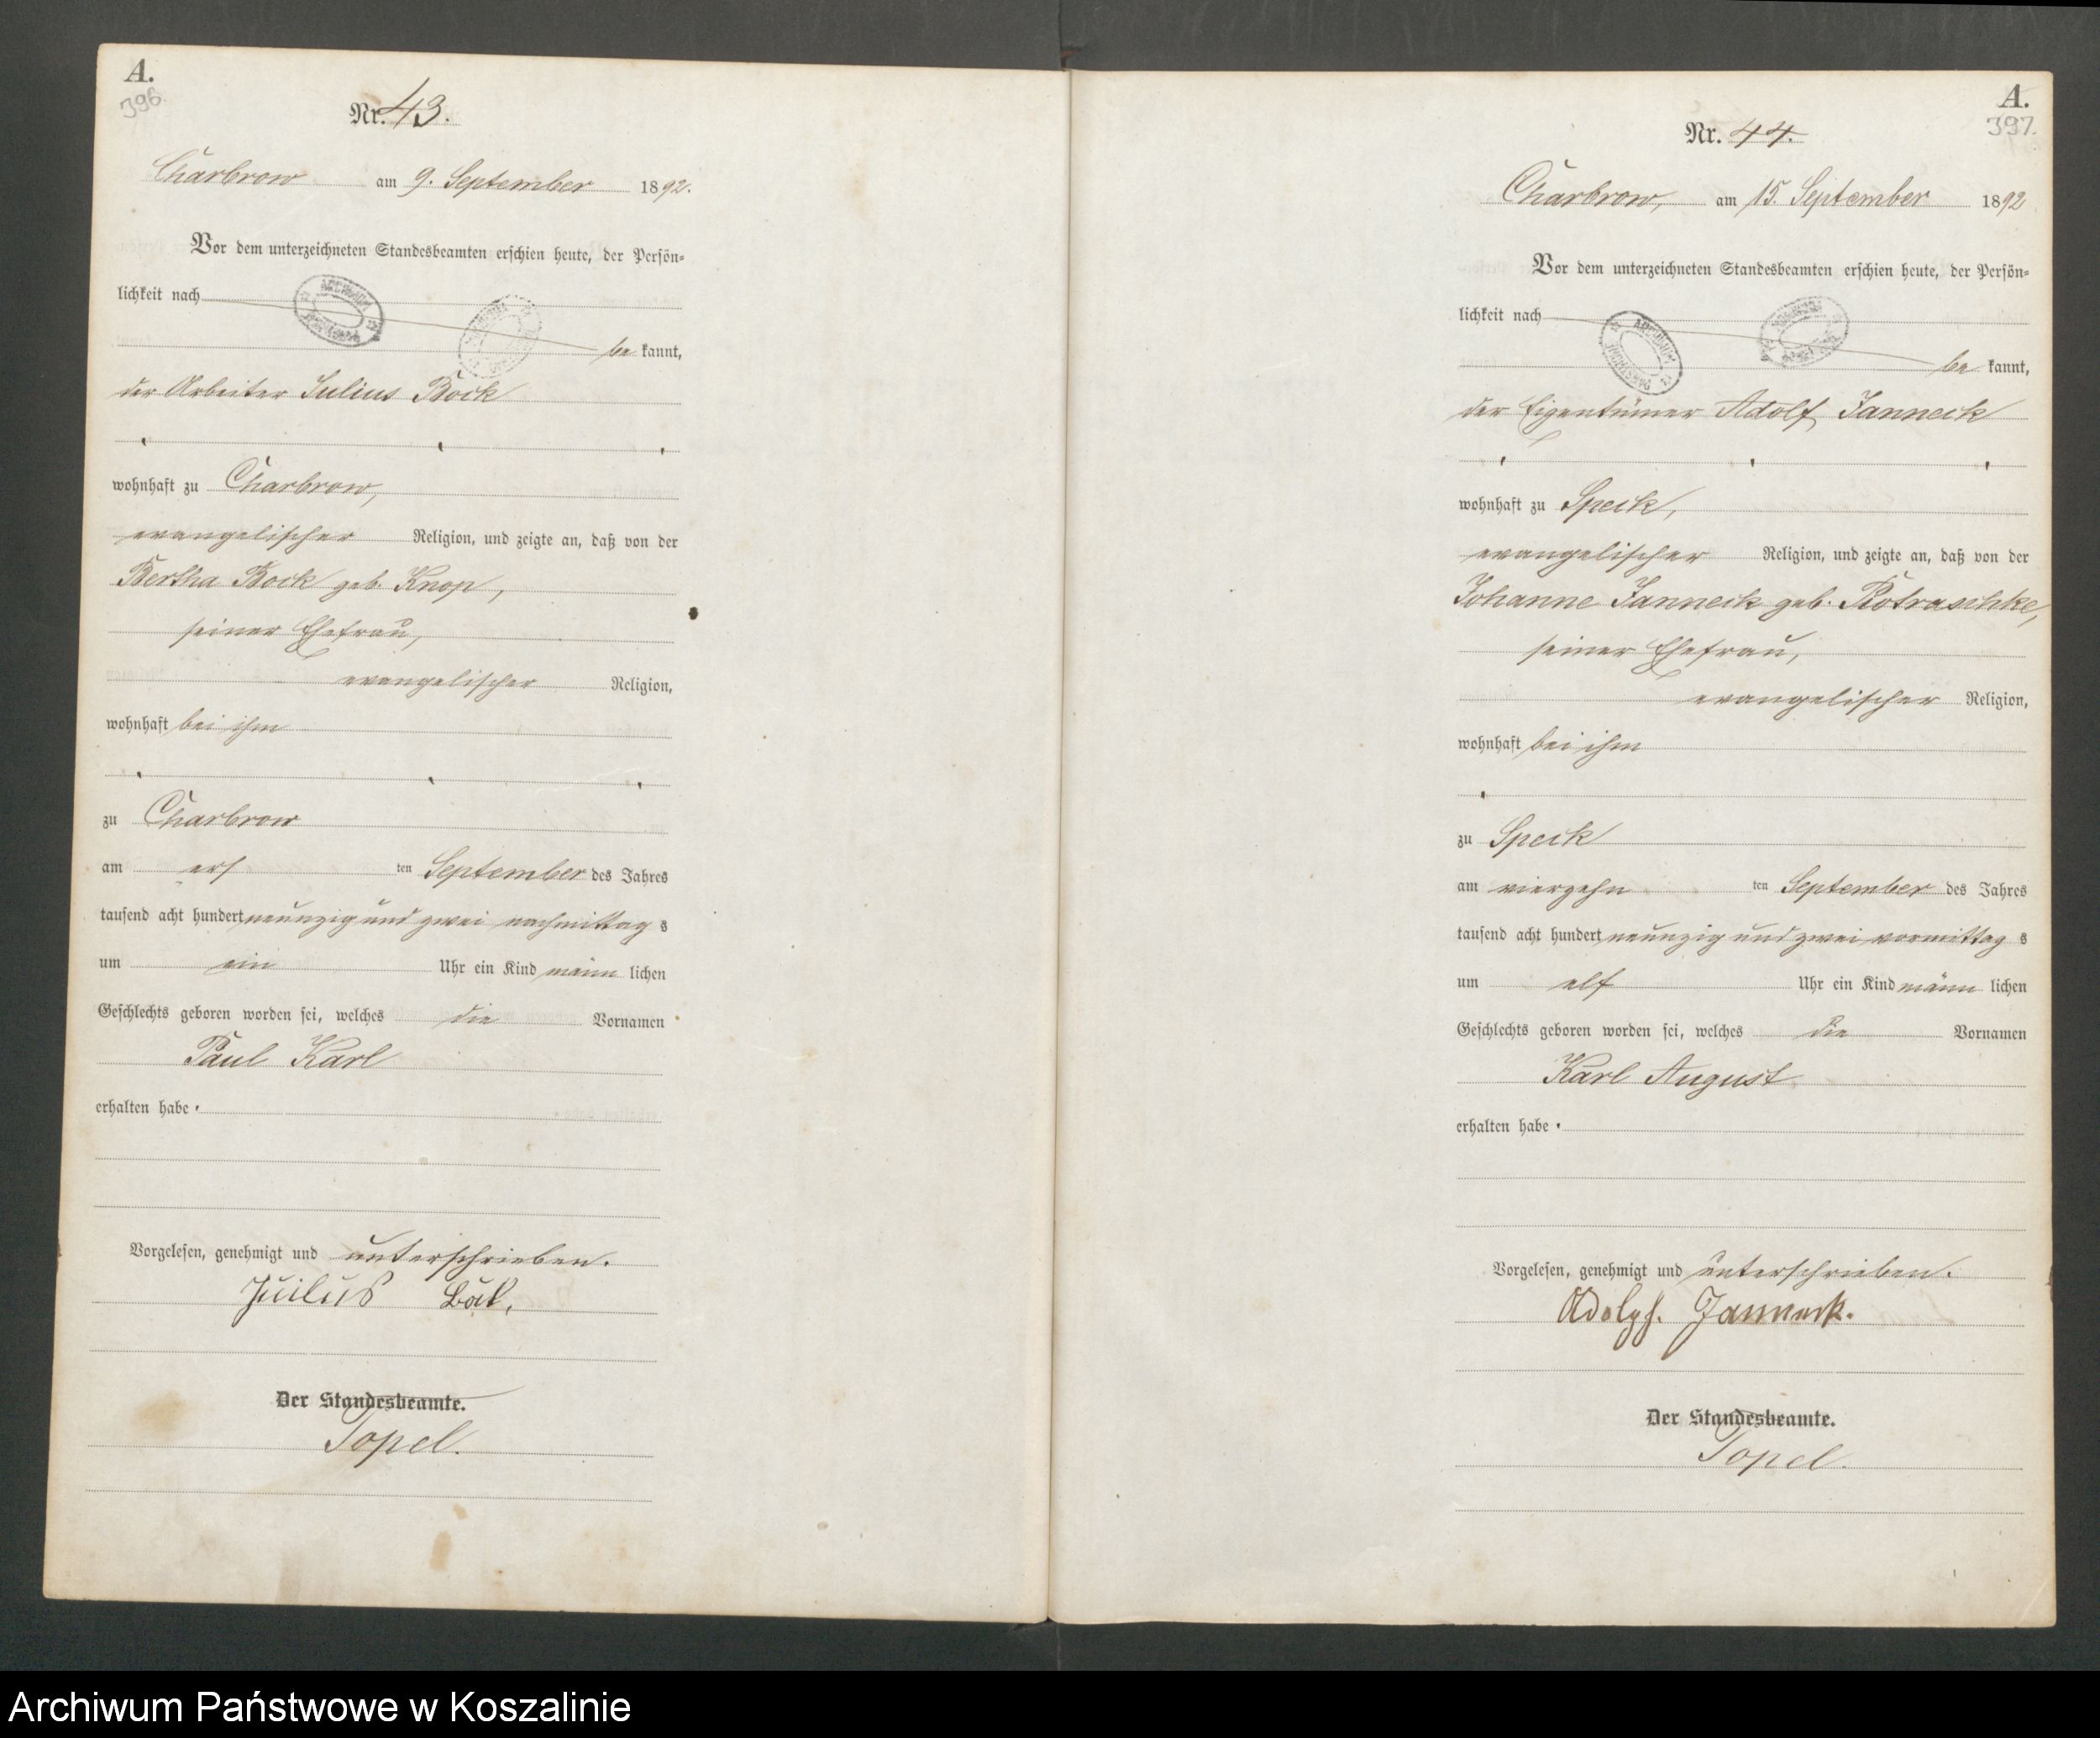 A.
396.
Nr. 43.
Charbrow am 9. September 1892.
Vor dem unterzeichneten Standesbeamten erschien heute, der Persön-
lichkeit nach
be kannt,
der Arbeiter Julius Bock
wohnhaft zu Charbrow,
evangelischer Religion, und zeigte an, daß von der
Bertha Bock geb. Knop,
seiner Ehefrau,
evangelischer Religion,
wohnhaft bei ihm
zu Charbrow
am ten September des Jahres
tausend acht hundert neunzig und zwei nachmittag s
um ein Uhr ein Kind männ lichen
Geschlechts geboren worden sei, welches die Vornamen
Paul Karl
erhalten habe.
Vorgelesen, genehmigt und unterschrieben.
Der Standesbeamte.
Topel.
A.
397.
Nr. 44.
Charbrow, am 15. September 1892
Vor dem unterzeichneten Standesbeamten erschien heute, der Persön-
lichkeit nach
be kannt,
der Eigentümer Adolf Janneck
wohnhaft zu Speck,
evangelischer Religion, und zeigte an, daß von der
Johanne Janneck geb. Kotraschke,
seiner Ehefrau,
evangelischer Religion,
wohnhaft bei ihm
zu Speck
am vierzehn ten September des Jahres
tausend acht hundert neunzig und zwei vormittag s
um elf Uhr ein Kind männ lichen
Geschlechts geboren worden sei, welches die Vornamen
Karl August
erhalten habe.
Vorgelesen, genehmigt und unterschrieben.
Adolph. Janneck.
Der Standesbeamte.
Topel.
Archiwum Państwowe w Koszalinie